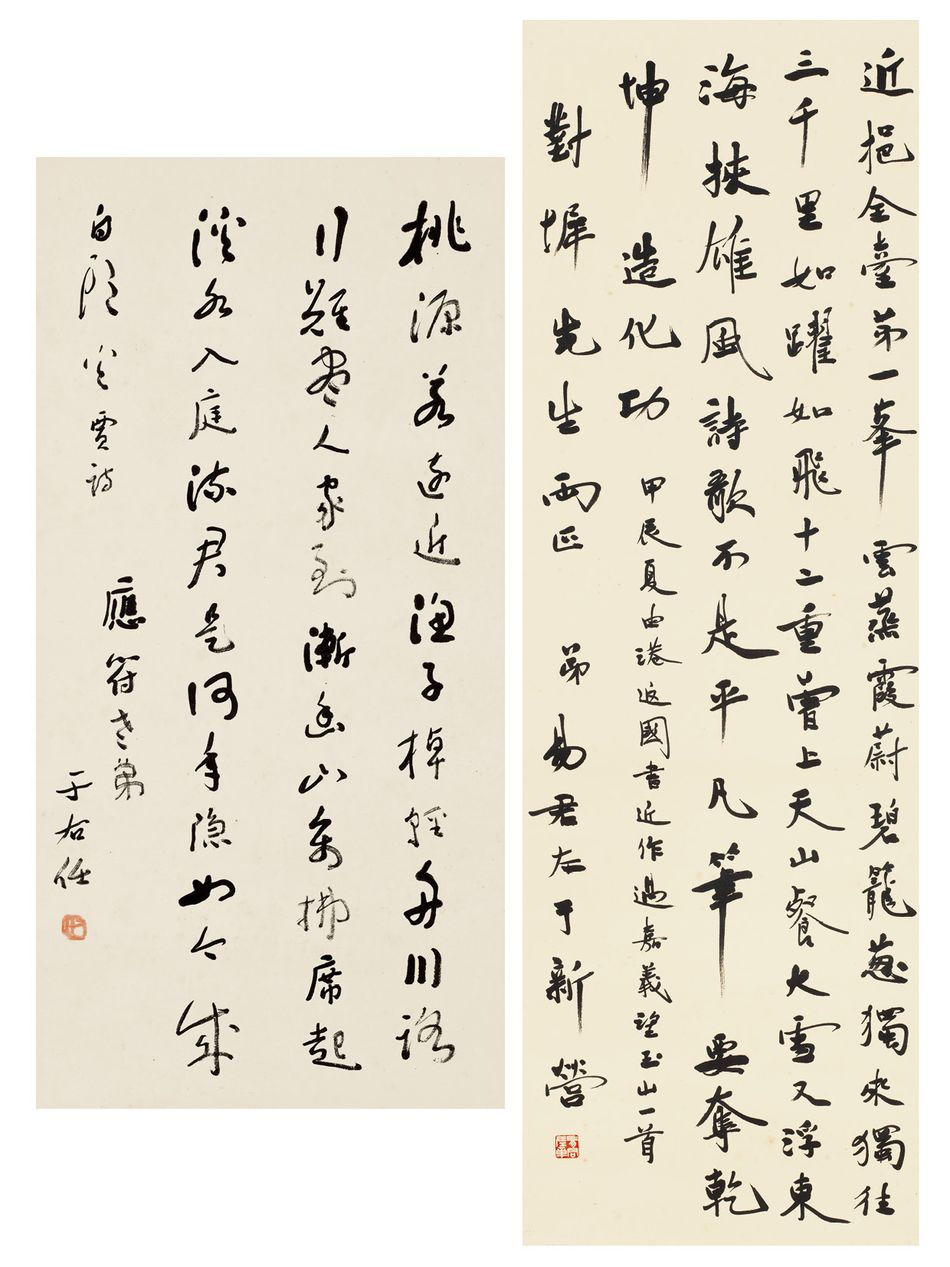 近挹全臺第一峯雲蒸霞蔚碧籠葱獨來獨往
三千里如躍如飛十二重曾上天山餐大雪又浮東
海挾雄風詩歌不是平凡筆要奪乾
坤造化功
甲辰夏由港返國書近作過嘉義望玉山一首
對墀先生兩正 弟易君左于新營
桃源若遠近漁子棹輕舟川路
行難盡人家到漸幽山禽拂席起
溪水入庭流君是何年隱如今成
白頭 賈詩
應符老弟
于右任